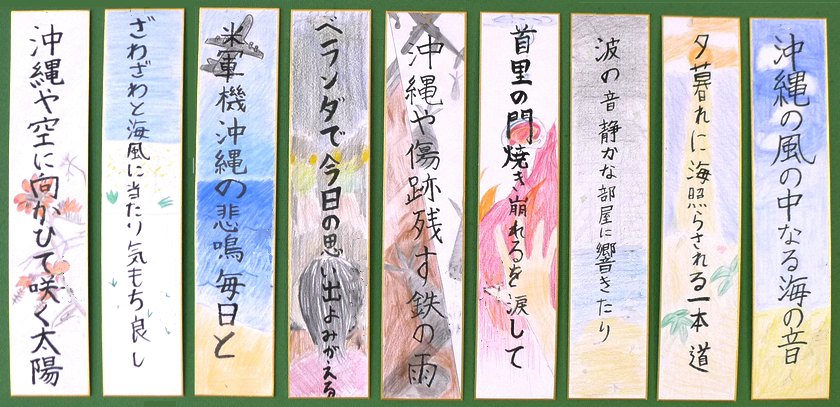 沖縄の風の中なる海の音
夕暮れに海照らされる一本道
波の音静かな部屋に響きたり
首里の門焼き崩れるを涙して
沖縄や傷跡残す鉄の雨
ベランダで今日の思い出よみがえる
米軍機沖縄の悲鳴毎日と
ざわざわと海風に当たり気もち良し
沖縄や空に向かひて咲く太陽